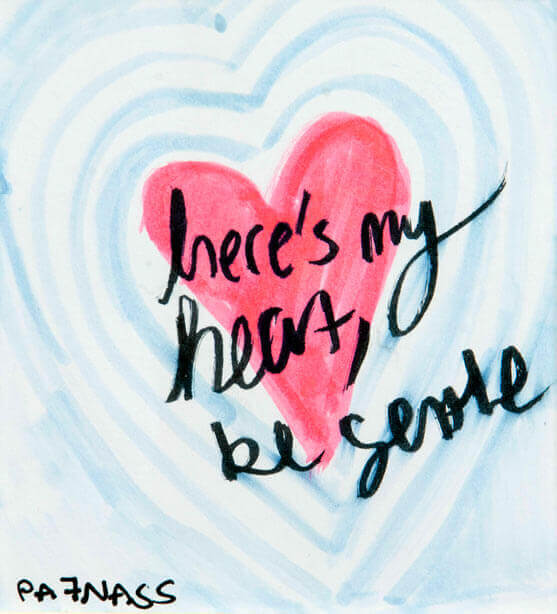 here's my
heart,
be gentle
PA7NASS